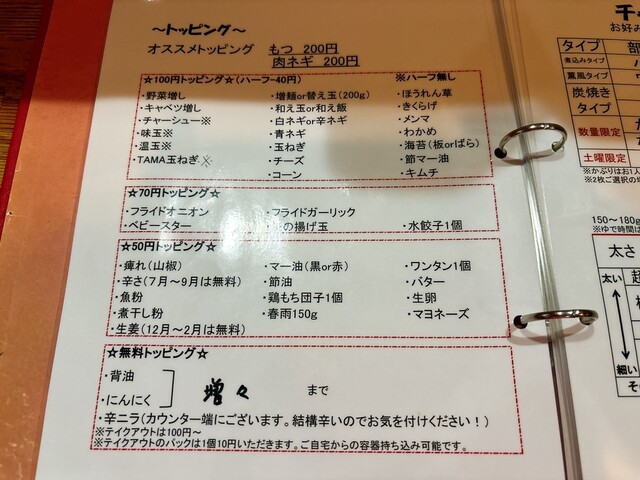 ～トッピング～
オススメトッピング　もつ 200円
肉ネギ 200円
☆100円トッピング☆(ハーフ-40円)　※ハーフ無し
・野菜増し　・増麺or替え玉(200g)　・ほうれん草
・キャベツ増し　・和え玉or和え飯　・きくらげ
・チャーシュー※　・白ネギor辛ネギ　・メンマ
・味玉※　・青ネギ　・わかめ
・温玉※　・玉ねぎ　・海苔(板orばら)
・TAMA玉ねぎ※　・チーズ　・節マー油
・コーン　・キムチ
☆70円トッピング☆
・フライドオニオン　・フライドガーリック
・ベビースター　の揚げ玉　・水餃子1個
☆50円トッピング☆
・痺れ(山椒)　・マー油(黒or赤)　・ワンタン1個
・辛さ(7月～9月は無料)　・節油　・バター
・魚粉　・鶏もち団子1個　・生卵
・煮干し粉　・春雨150g　・マヨネーズ
・生姜(12月～2月は無料)
☆無料トッピング☆
・背油
・にんにく　増々　まで
・辛ニラ(カウンター端にございます。結構辛いのでお気を付けください！)
※テイクアウトは100円～
※テイクアウトのパックは1個10円いただきます。ご自宅からの容器持ち込み可能です。
千
お好み
タイプ　部
煮込みタイプ
薫風タイプ
炭焼き
タイプ
数量限定
土曜限定
※かぶりはお1人
※2枚ご選択の場
150～180g
※ゆで時間は
太さ
太い　超
細い
そ